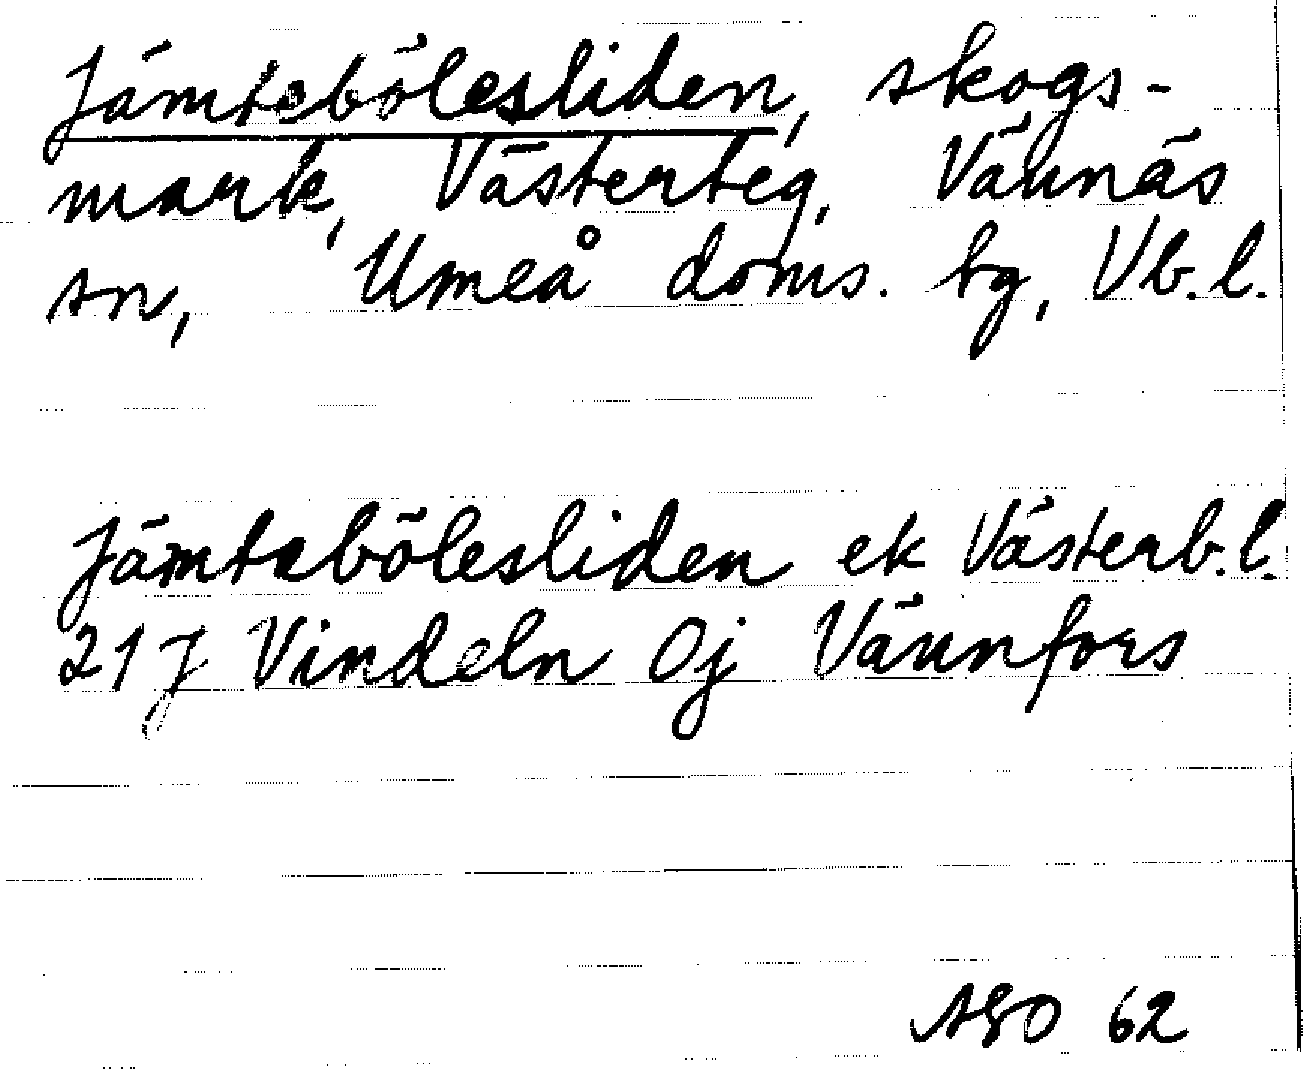 Jämtebölesliden, skogs-
mark, Västerteg, Vännäs
sn, Umeå doms. bg, Vb.l.
Jämtebölesliden ek Västerb.l.
21J Vindeln 0j Vännfors
62